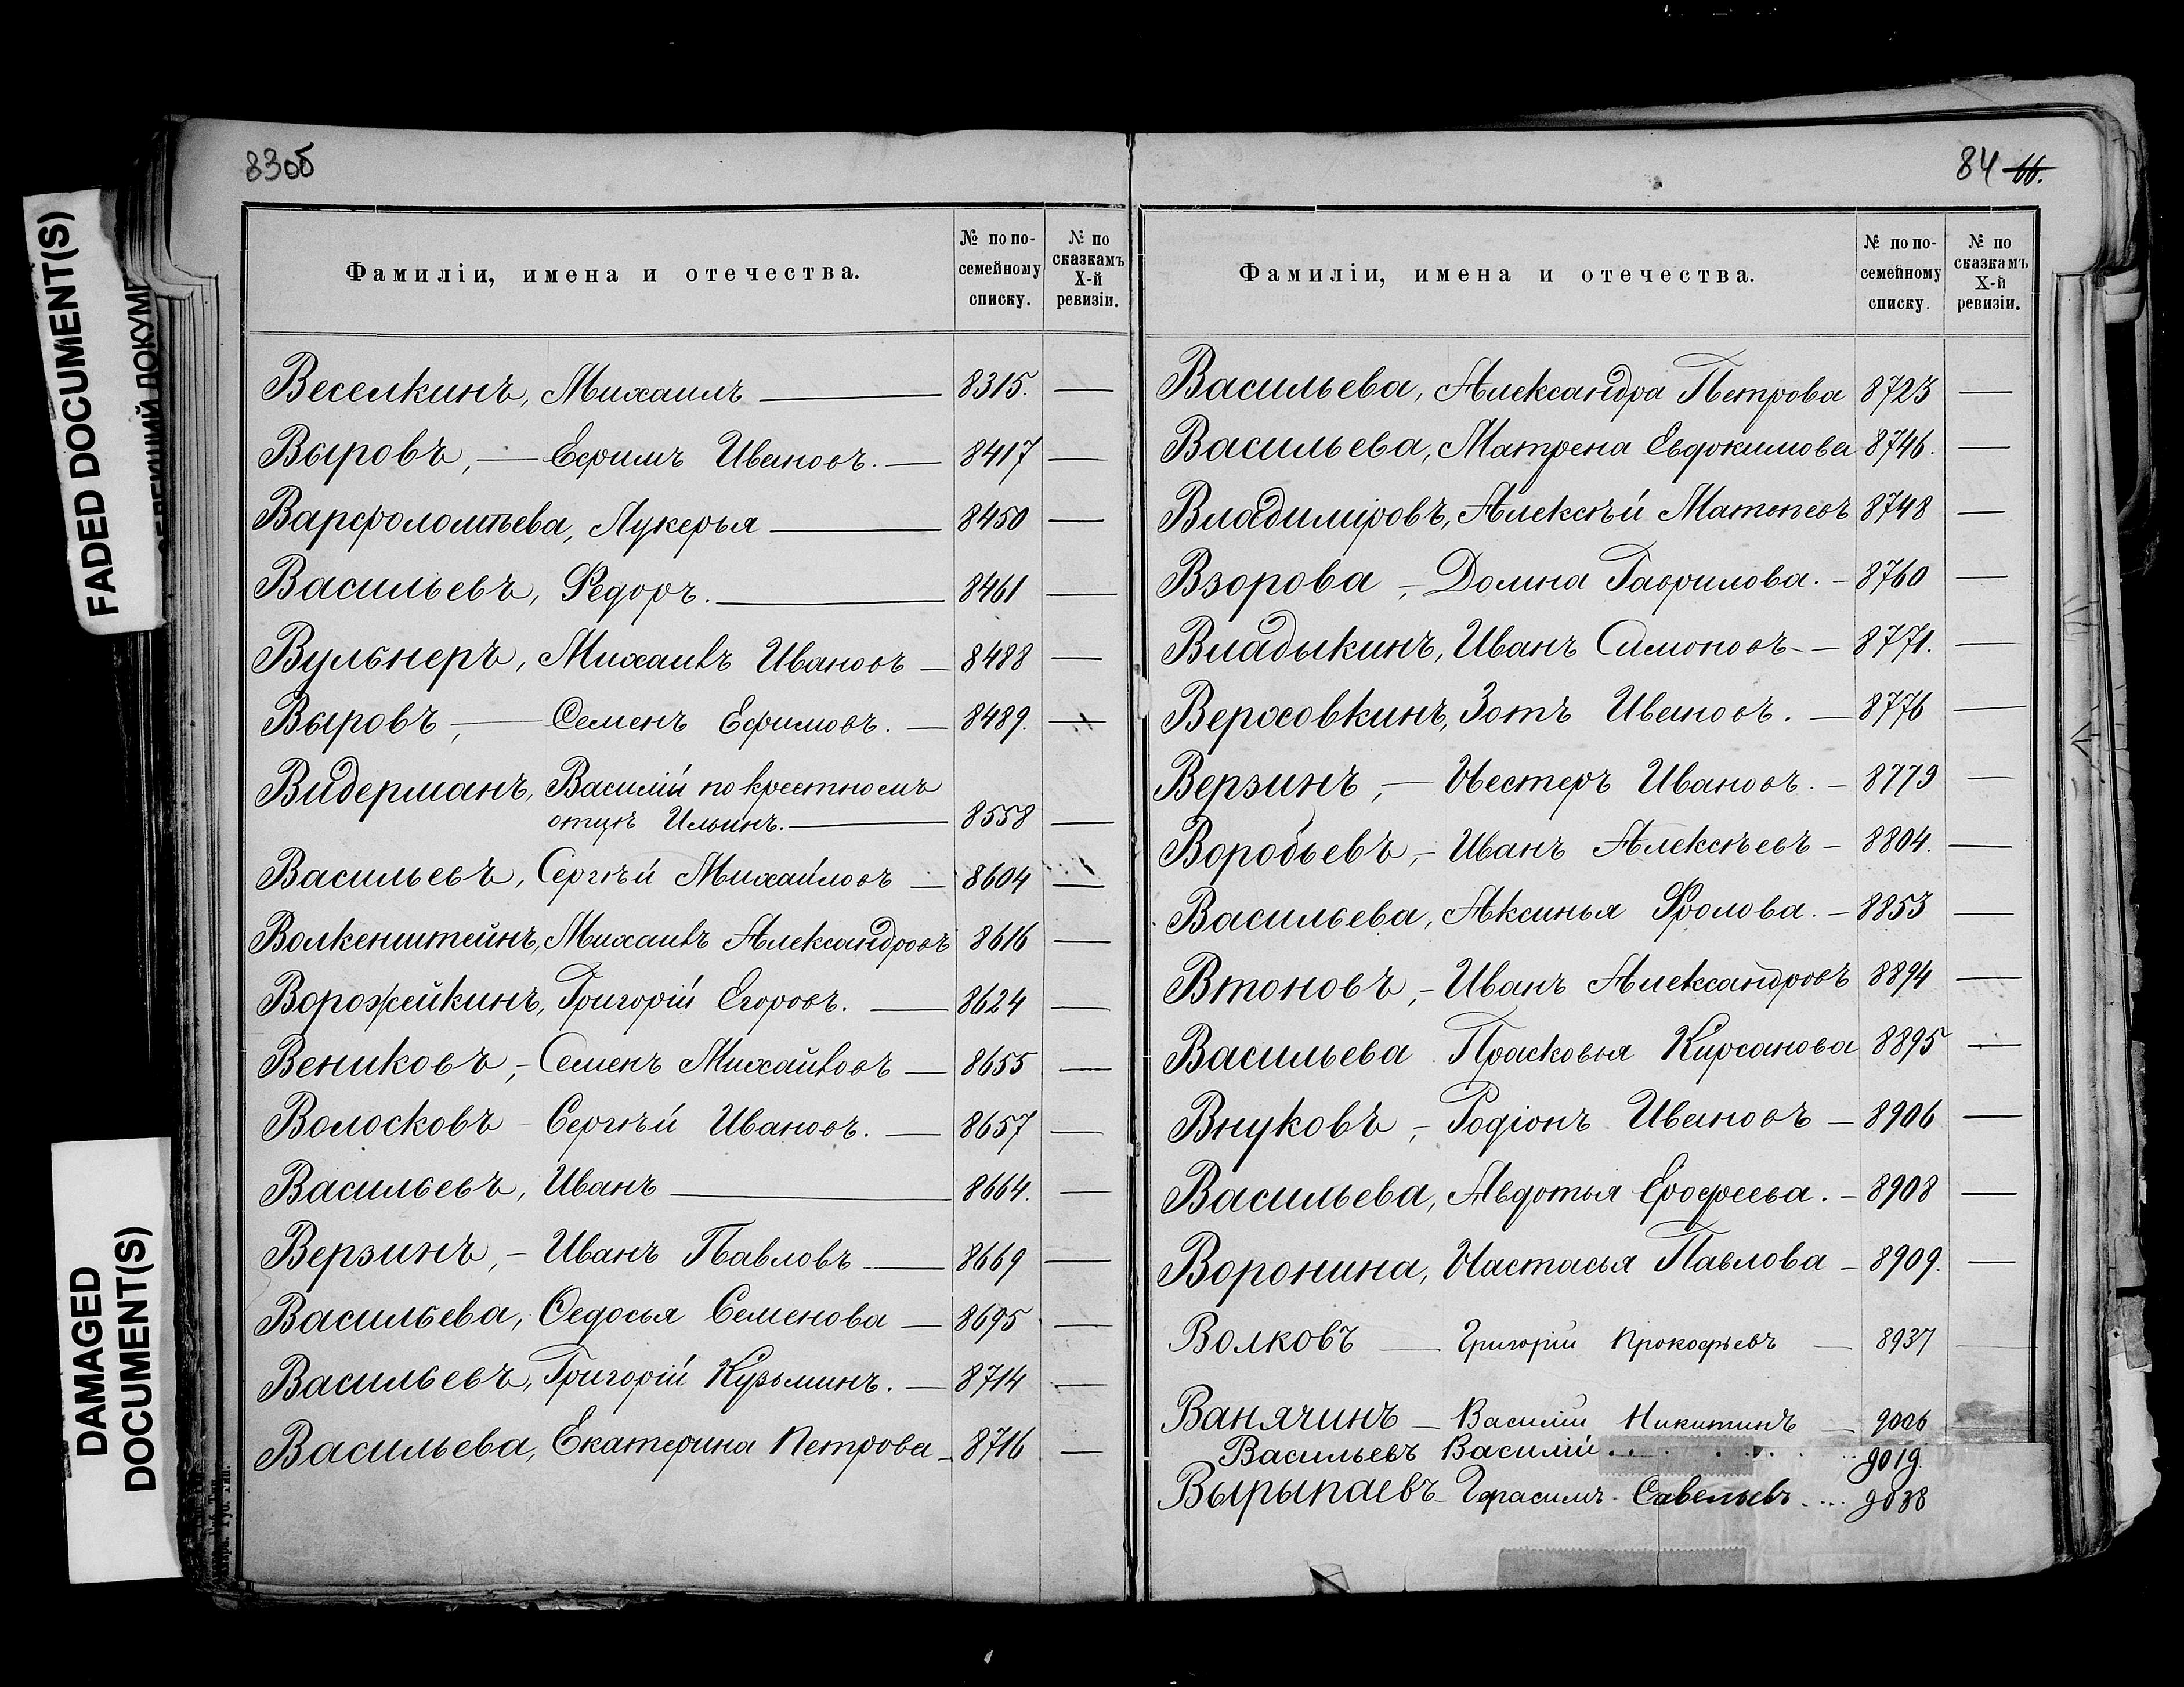 FADED DOCUMENT(S)
DAMAGED
DOCUMENT(S)
83об
Фамиліи, имена и отечества.
№ по по-
семейному
списку.
№ по
сказкамъ
X-й
ревизіи.
Веселкинъ, Михаилъ — 8315. —
Выровъ, — Ефимъ Ивановъ. — 8417 —
Варфоломѣева, Лукерья — 8450 —
Васильевъ, Федоръ. — 8461 —
Вульнеръ, Михаилъ Ивановъ — 8488 —
Выровъ, — Семенъ Ефимовъ. — 8489. —
Видерманъ, Василій по крестномъ
отцѣ Ильинъ. — 8558 —
Васильевъ, Сергѣй Михайловъ — 8604 —
Волкенштейнъ, Михаилъ Александровъ 8616 —
Ворожейкинъ, Григорій Егоровъ. — 8624 —
Вениковъ, - Семенъ Михайловъ — 8655 —
Волосковъ - Сергѣй Ивановъ. — 8657 —
Васильевъ, Иванъ — 8664. —
Верзинъ, - Иванъ Павловъ — 8669 —
Васильева, Ѳедосья Семенова — 8695 —
Васильевъ, Григорій Кузьминъ. — 8714 —
Васильева, Екатерина Петрова - 8716 —
84 66.
Фамиліи, имена и отечества.
№ по по-
семейному
списку.
№ по
сказкамъ
X-й
ревизіи.
Васильева, Александра Петрова 8723 —
Васильева, Матрена Евдокимова 8746. —
Владиміровъ, Алексѣй Матвѣевъ 8748 —
Взорова - Домна Гаврилова. - 8760 —
Владыкинъ, Иванъ Симоновъ - — 8771. —
Верховкинъ, Зотъ Ивановъ. — 8776 —
Верзинъ, — Нестеръ Ивановъ. - 8779 —
Воробьевъ, - Иванъ Алексѣевъ - 8804. —
Васильева, Аксинья Фролова. - 8853 —
Втоновъ, - Иванъ Александровъ 8894 —
Васильева Прасковья Кирсанова 8895 —
Внуковъ, - Родіонъ Ивановъ - 8906 —
Васильева, Авдотья Ерофеева. - 8908 —
Воронина, Настасья Павлова - 8909. —
Волковъ — Григорій Прокофьевъ — 8937
Ванячинъ — Василій Никитинъ — 9006
Васильевъ Василій . . . . . . . 9019
Вырыпаевъ - Герасимъ - Савельевъ . . . . 9038